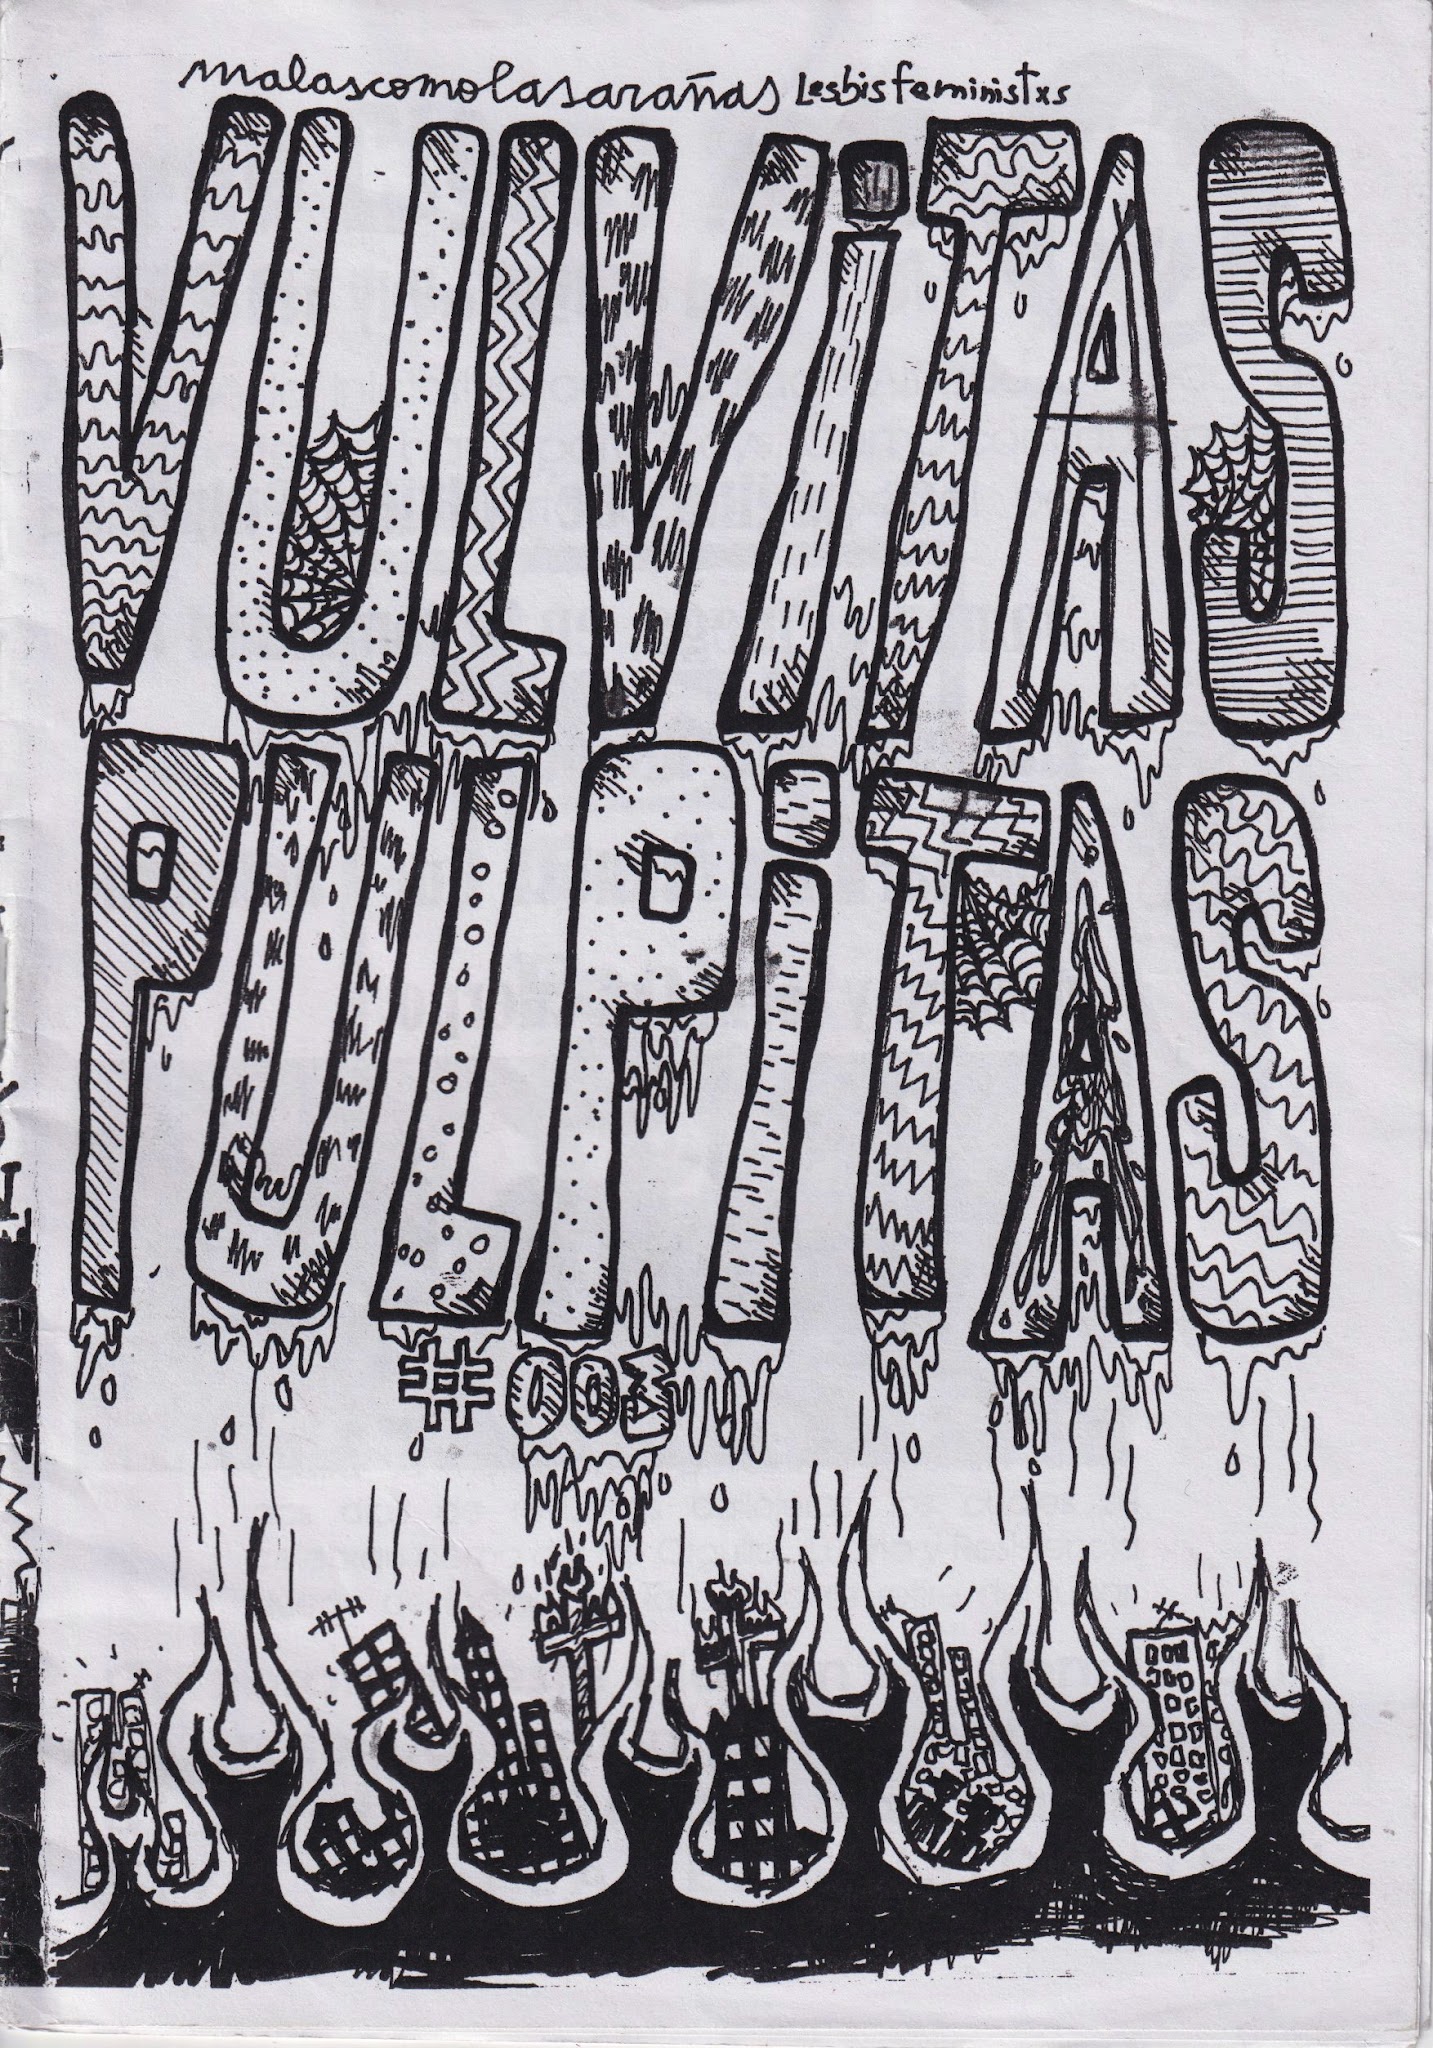 malascomolasarañas Lesbisfeministxs
VULViTAS
PULPiTAS
#003